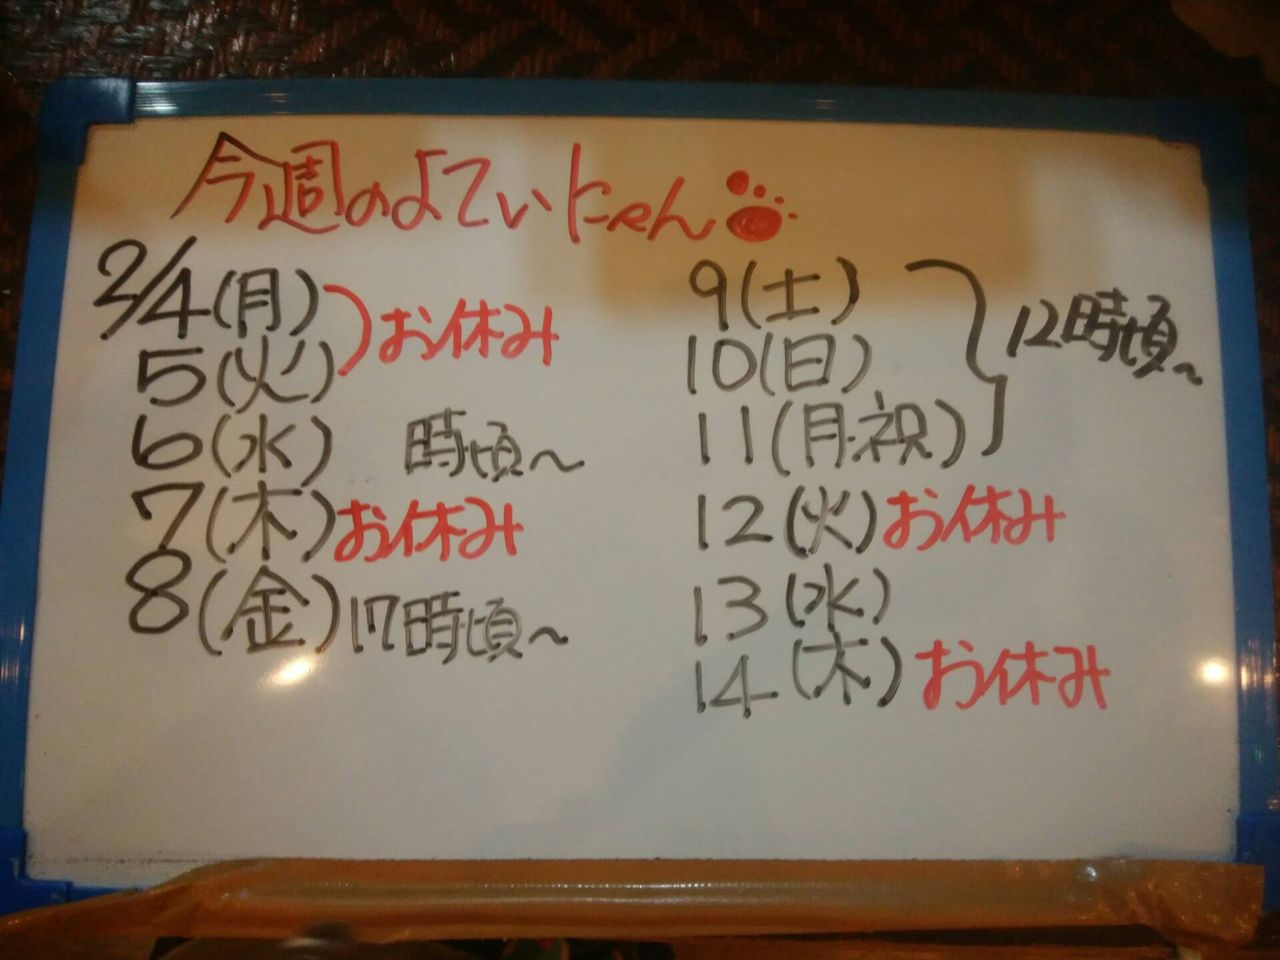 今週のよていにゃん
2/4(月)
5(火)
お休み
6(水) 時頃～
7(木)お休み
8(金)17時頃～
9(土)
10(日)
11(月・祝)
12時頃～
12(火)お休み
13(水)
14(木)お休み